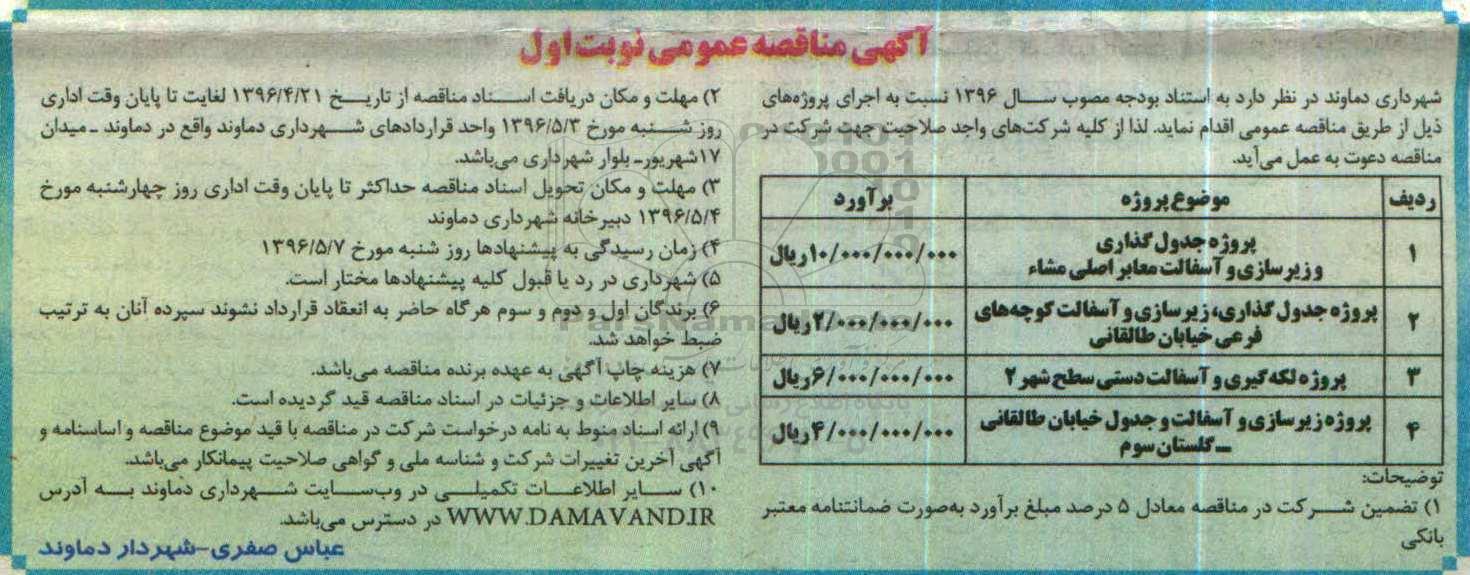 آگهی مناقصه عمومی نوبت اول
شهرداری دماوند در نظر دارد به استناد بودجه مصوب سال ۱۳۹۶ نسبت به اجرای پروژه‌های
ذیل از طریق مناقصه عمومی اقدام نماید. لذا از کلیه شرکت‌های واجد صلاحیت جهت شرکت در
مناقصه دعوت به عمل می‌آید.
ردیف موضوع پروژه برآورد
۱ پروژه جدول گذاری
و زیرسازی و آسفالت معابر اصلی مشاء ۱۰/۰۰۰/۰۰۰/۰۰۰ ریال
۲ پروژه جدول گذاری، زیرسازی و آسفالت کوچه‌های
فرعی خیابان طالقانی ۲/۰۰۰/۰۰۰/۰۰۰ ریال
۳ پروژه لکه گیری و آسفالت دستی سطح شهر ۲ ۶/۰۰۰/۰۰۰/۰۰۰ ریال
۴ پروژه زیرسازی و آسفالت و جدول خیابان طالقانی
ـ گلستان سوم ۴/۰۰۰/۰۰۰/۰۰۰ ریال
توضیحات:
۱) تضمین شرکت در مناقصه معادل ۵ درصد مبلغ برآورد به‌صورت ضمانتنامه معتبر
بانکی
۲) مهلت و مکان دریافت اسناد مناقصه از تاریخ ۱۳۹۶/۴/۲۱ لغایت تا پایان وقت اداری
روز شنبه مورخ ۱۳۹۶/۵/۳ واحد قراردادهای شهرداری دماوند واقع در دماوند ـ میدان
۱۷شهریورـ بلوار شهرداری می‌باشد.
۳) مهلت و مکان تحویل اسناد مناقصه حداکثر تا پایان وقت اداری روز چهارشنبه مورخ
۱۳۹۶/۵/۴ دبیرخانه شهرداری دماوند
۴) زمان رسیدگی به پیشنهادها روز شنبه مورخ ۱۳۹۶/۵/۷
۵) شهرداری در رد یا قبول کلیه پیشنهادها مختار است.
۶) برندگان اول و دوم و سوم هرگاه حاضر به انعقاد قرارداد نشوند سپرده آنان به ترتیب
ضبط خواهد شد.
۷) هزینه چاپ آگهی به عهده برنده مناقصه می‌باشد.
۸) سایر اطلاعات و جزئیات در اسناد مناقصه قید گردیده است.
۹) ارائه اسناد منوط به نامه درخواست شرکت در مناقصه با قید موضوع مناقصه و اساسنامه و
آگهی آخرین تغییرات شرکت و شناسه ملی و گواهی صلاحیت پیمانکار می‌باشد.
۱۰) سایر اطلاعات تکمیلی در وب‌سایت شهرداری دماوند به آدرس
WWW.DAMAVAND.IR در دسترس می‌باشد.
عباس صفری-شهردار دماوند